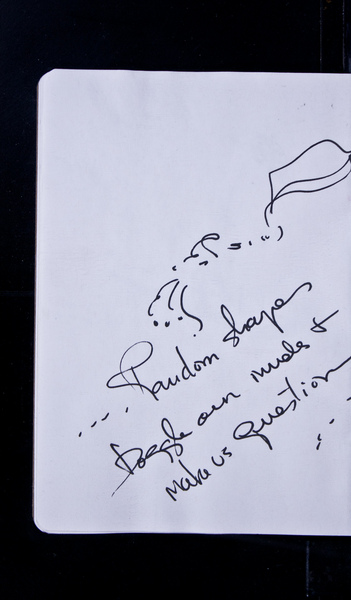 Random shapes
boggle our minds &
make us question